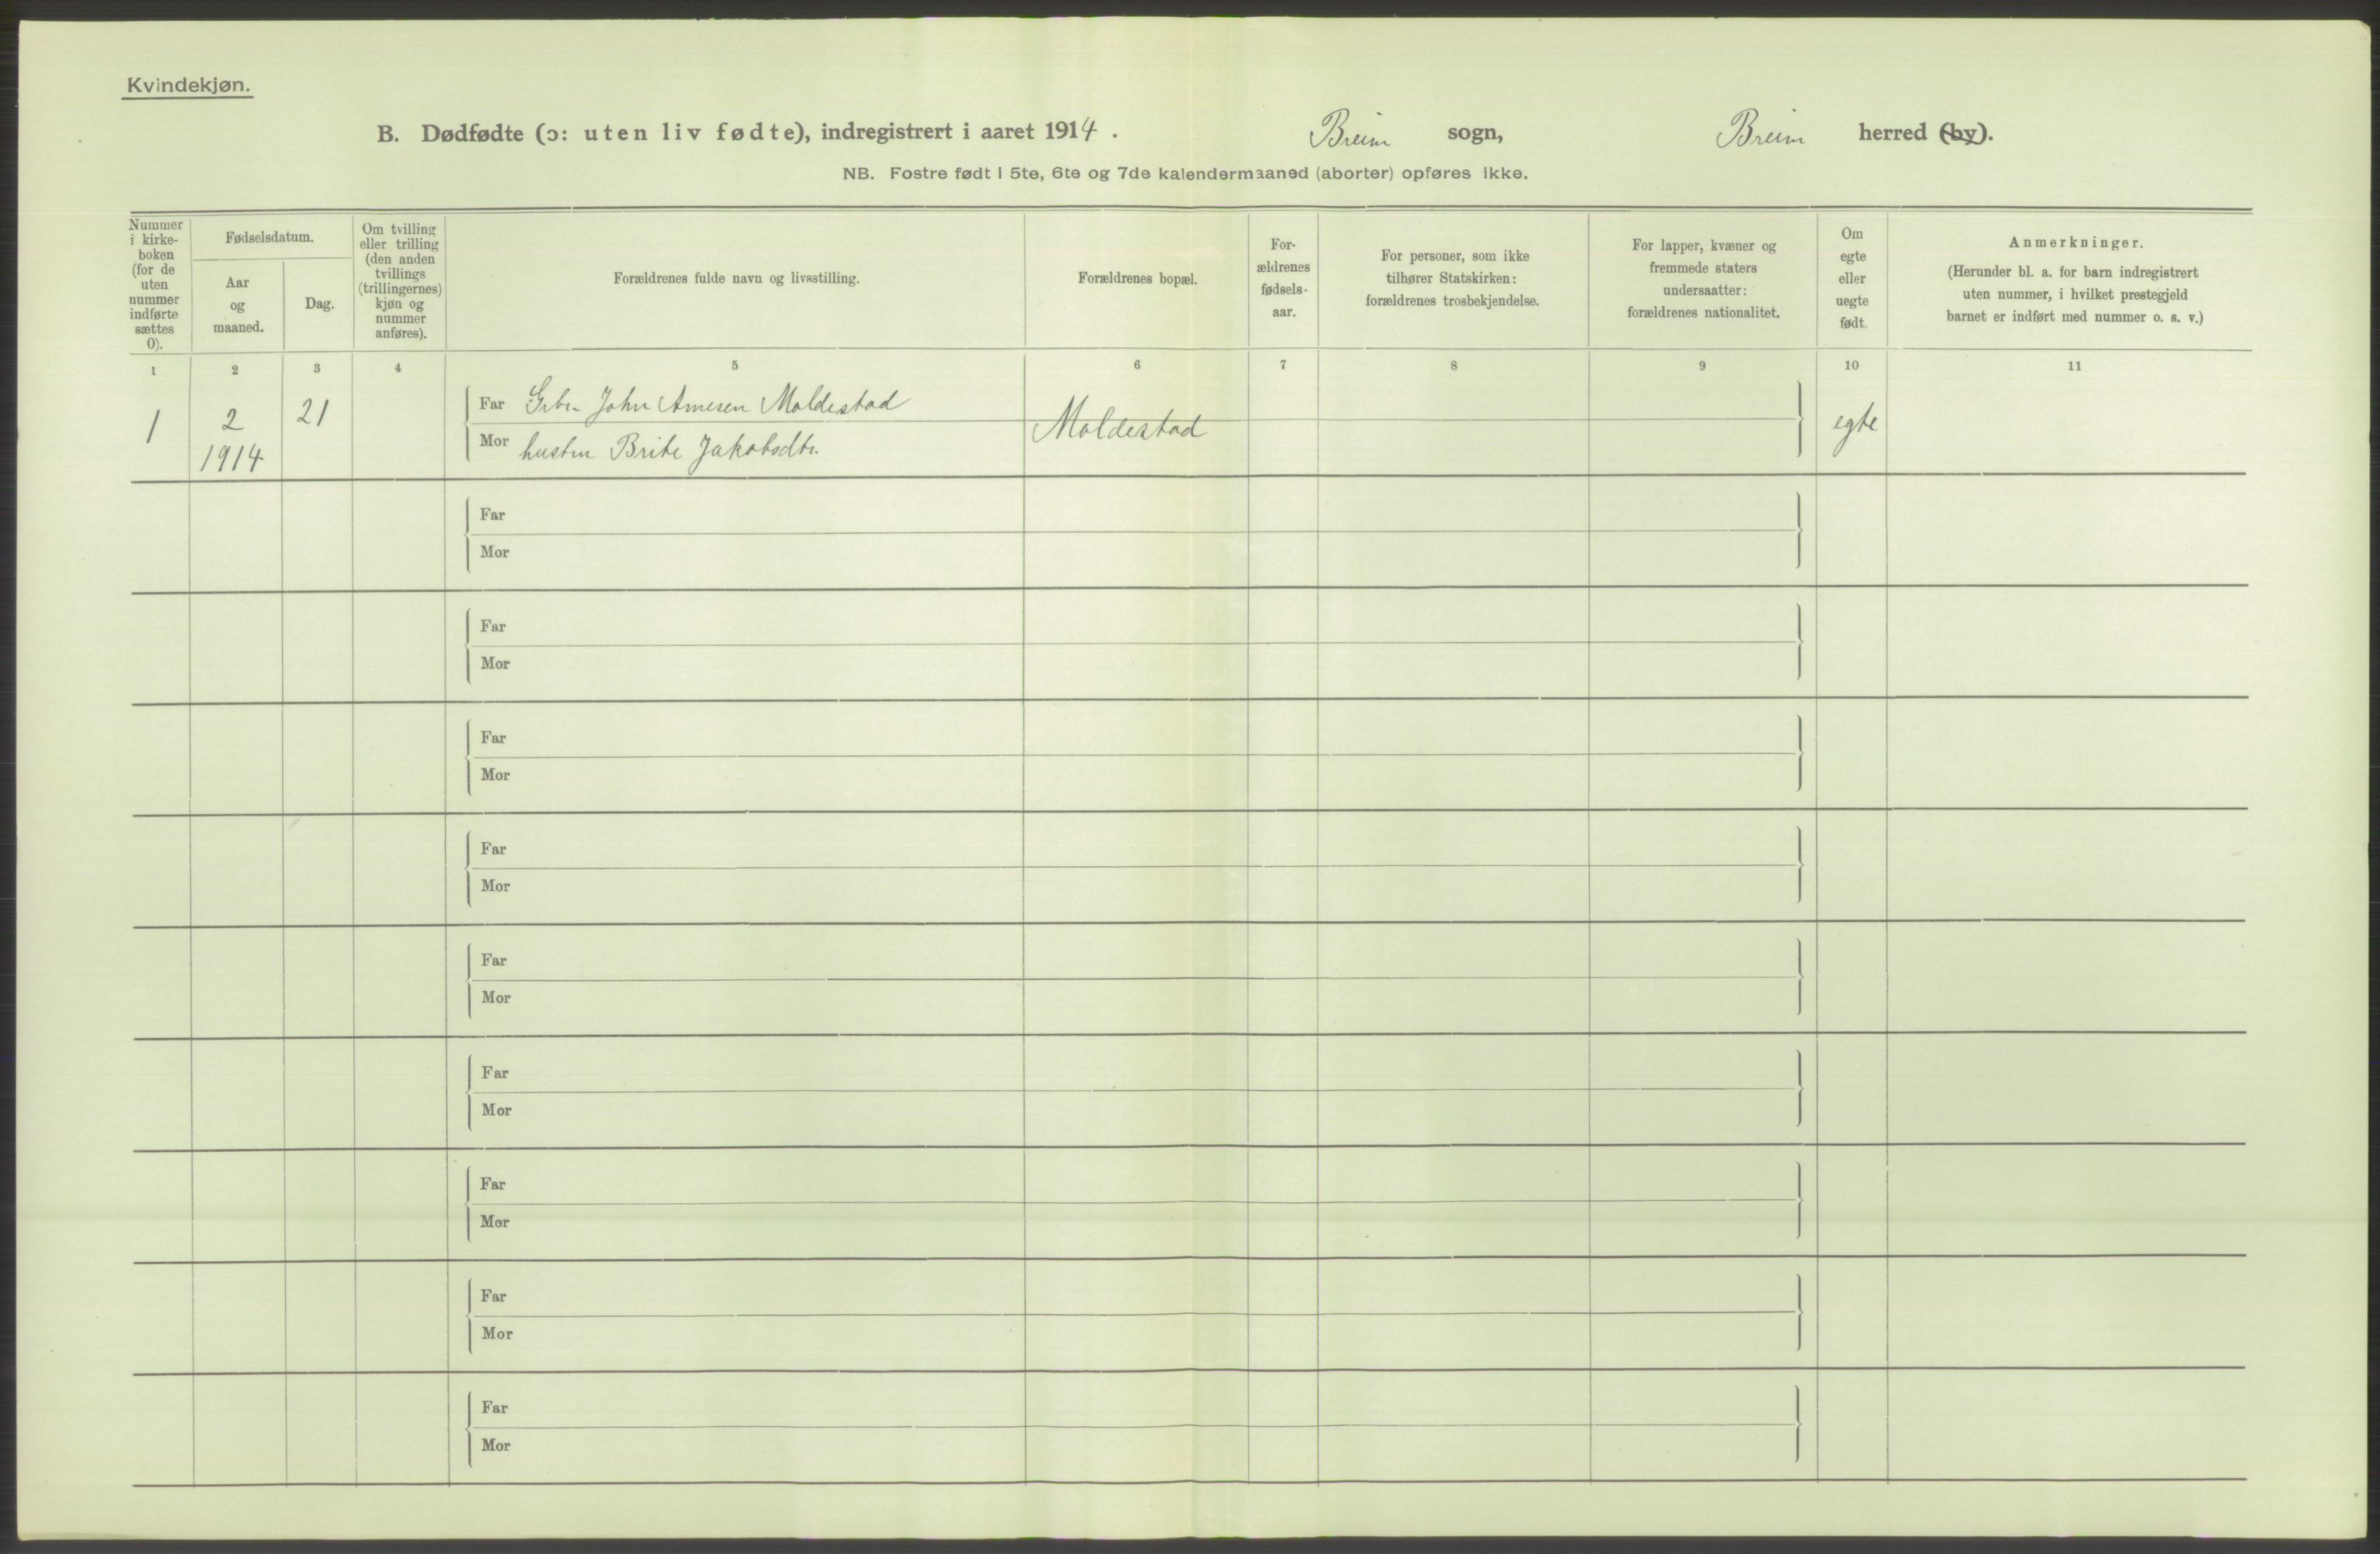 Kvindekjøn.
B. Dødfødte (ɔ: uten liv fødte), indregistrert i aaret 1914. Breim sogn, Breim herred (by).
NB. Fostre født i 5te, 6te og 7de kalendermaaned (aborter) opføres ikke.
Nummer
i kirke-
boken
(for de
uten
nummer
indførte
sættes
0).
Fødselsdatum.
Aar
og
maaned.
Dag.
Om tvilling
eller trilling
(den anden
tvillings
(trillingernes)
kjøn og
nummer
anføres).
Forældrenes fulde navn og livsstilling.
Forældrenes bopæl.
For-
ældrenes
fødsels-
aar.
For personer, som ikke
tilhører Statskirken:
forældrenes trosbekjendelse.
For lapper, kvæner og
fremmede staters
undersaatter:
forældrenes nationalitet.
Om
egte
eller
uegte
født.
Anmerkninger.
(Herunder bl. a. for barn indregistrert
uten nummer, i hvilket prestegjeld
barnet er indført med nummer o. s. v.)
1 2 3 4 5 6 7 8 9 10 11
1
2
1914
21
Far Grbr. John Arnesen Moldestad
Mor hustru Brite Jakobsdtr.
Moldestad
egte
Far
Mor
Far
Mor
Far
Mor
Far
Mor
Far
Mor
Far
Mor
Far
Mor
Far
Mor
Far
Mor